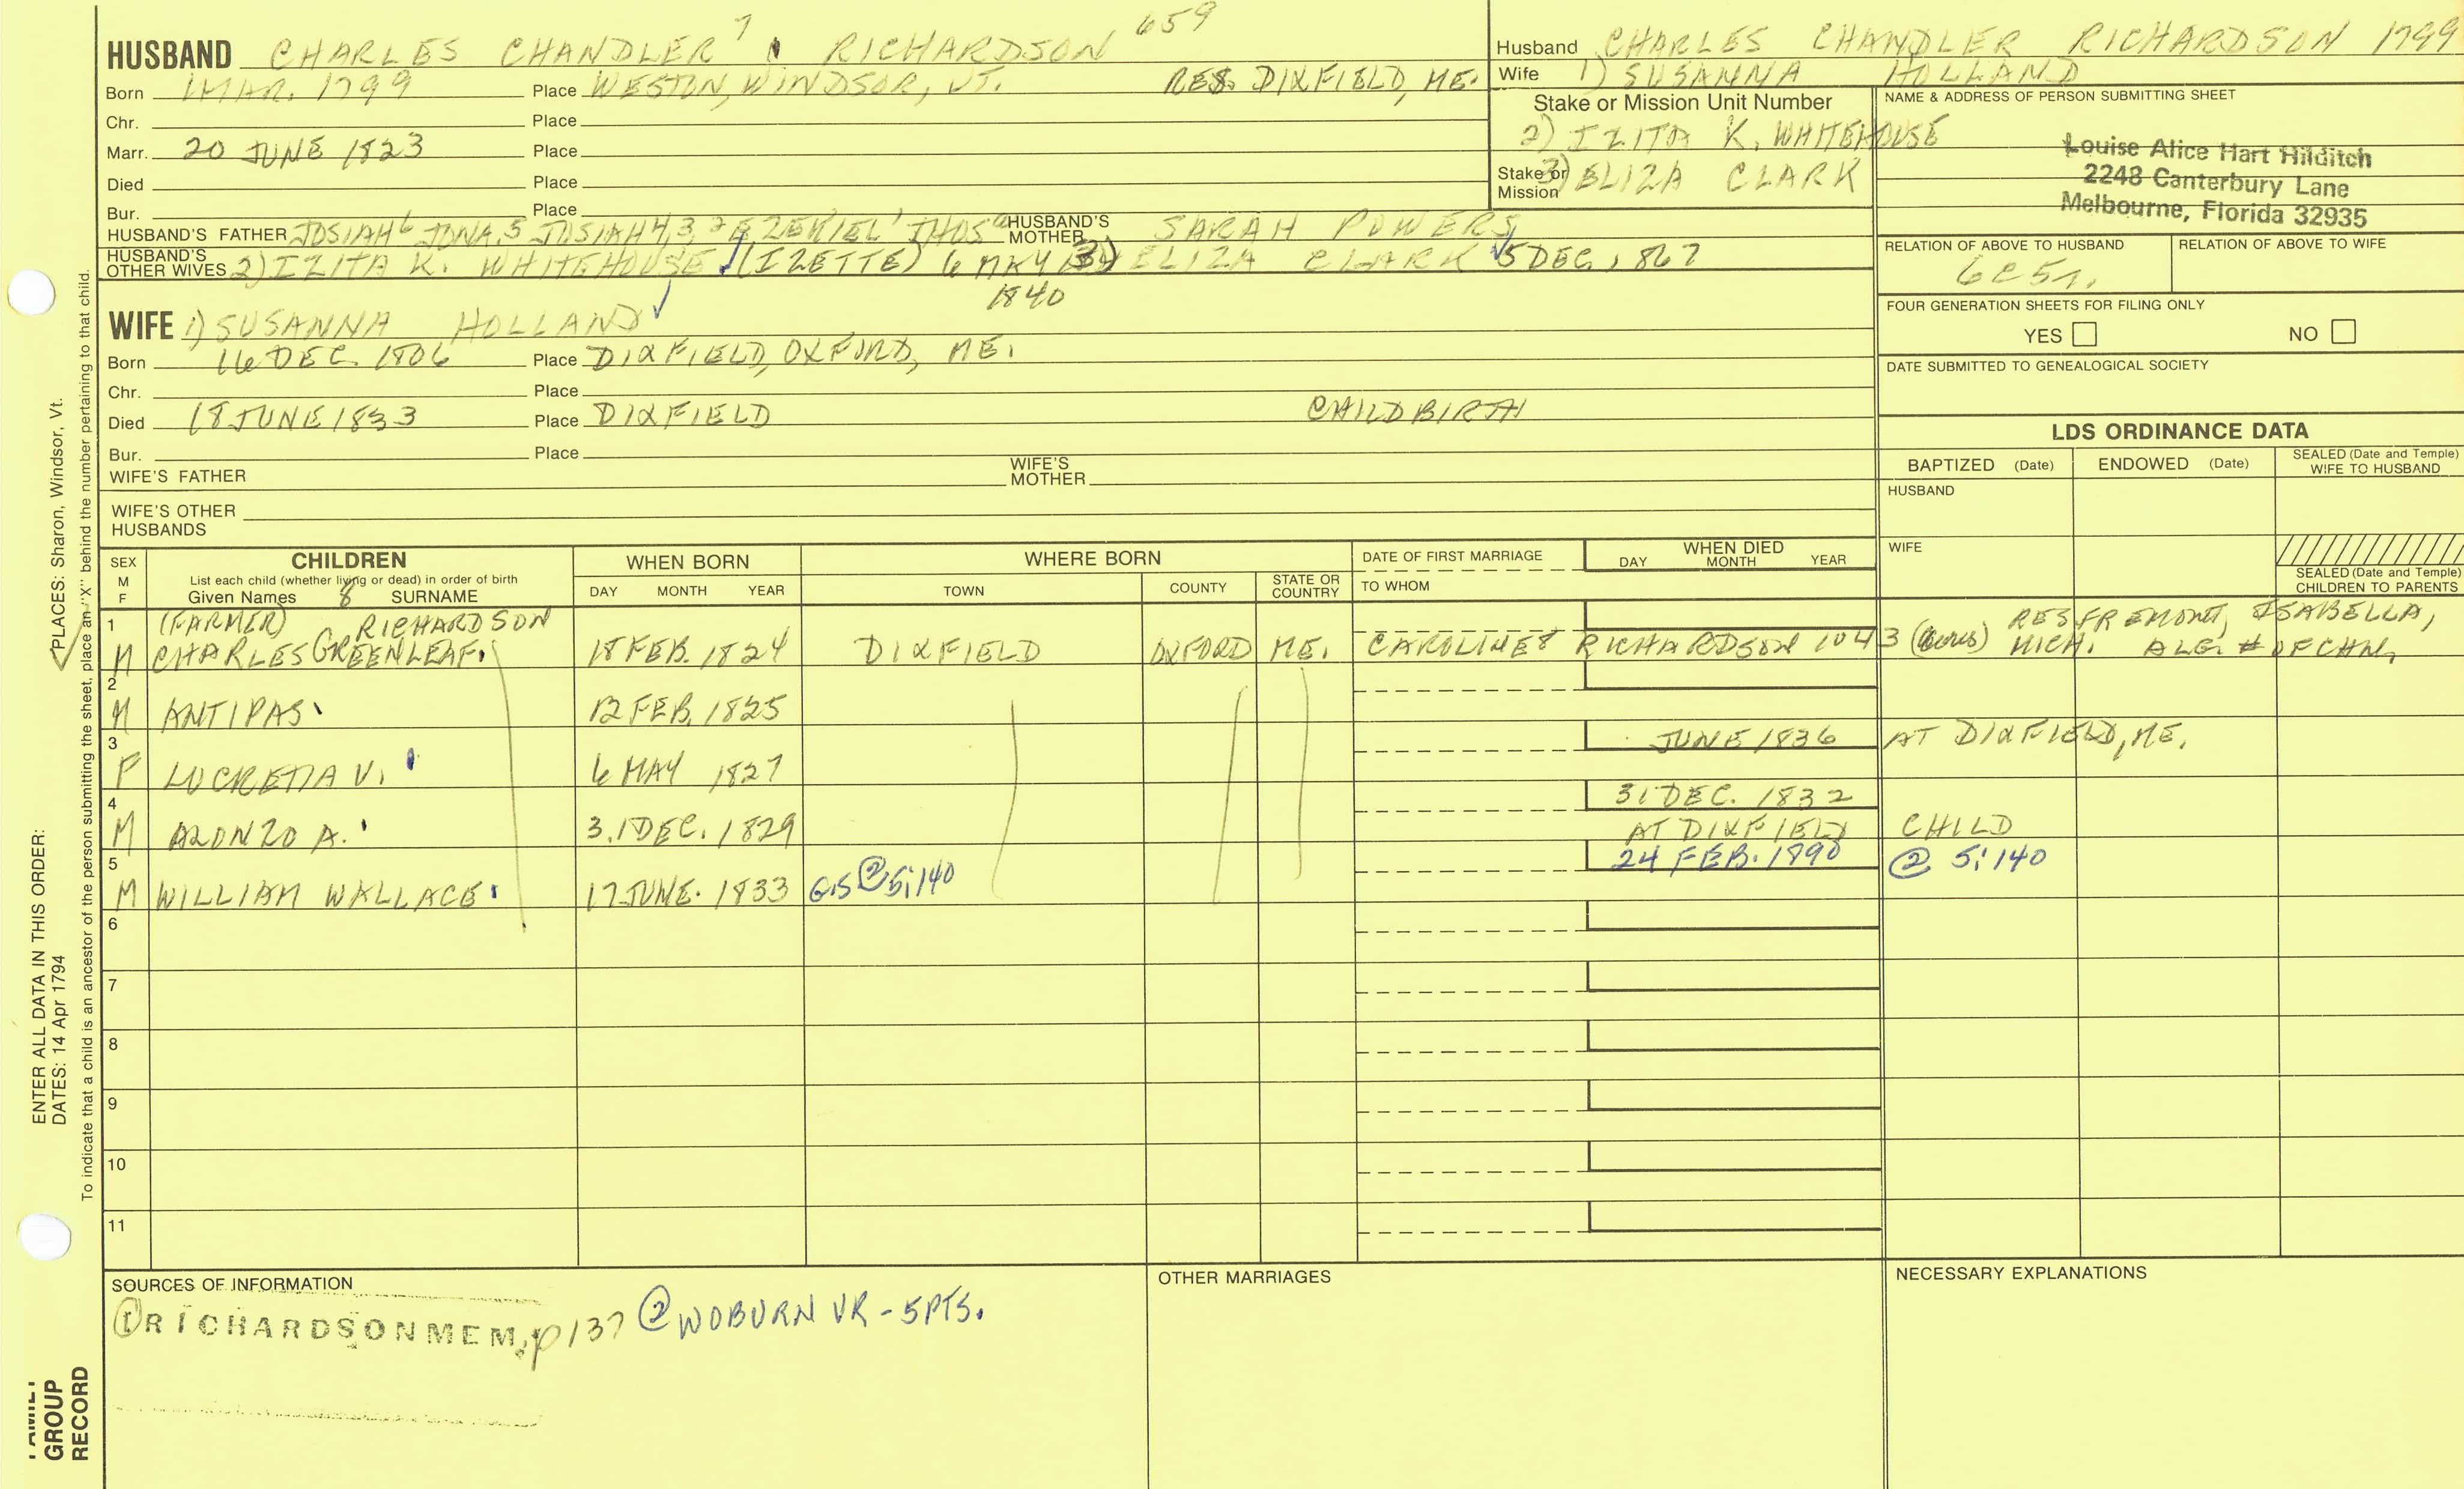 HUSBAND CHARLES CHANDLER 7 RICHARDSON 659
Born 1 MAR. 1799 Place WESTON, WINDSOR, VT. RES. DIXFIELD, ME.
Chr. Place
Marr. 20 JUNE 1823 Place
Died Place
Bur. Place
HUSBAND'S FATHER JOSIAH6 JONA.5 JOSIAH4,3,2 EZEKIEL1 THOS HUSBAND'S MOTHER SARAH POWERS
HUSBAND'S OTHER WIVES 2) IZITA K. WHITEHOUSE (IZETTE) 6 MAY 1840 3) ELIZA CLARK 5 DEC. 1867
Husband CHARLES CHANDLER RICHARDSON 1799
Wife 1) SUSANNA HOLLAND
Stake or Mission Unit Number
2) IZITA K. WHITEHOUSE
Stake or Mission 3) ELIZA CLARK
NAME & ADDRESS OF PERSON SUBMITTING SHEET
Louise Alice Hart Hilditch
2248 Canterbury Lane
Melbourne, Florida 32935
RELATION OF ABOVE TO HUSBAND RELATION OF ABOVE TO WIFE
6C5r.
FOUR GENERATION SHEETS FOR FILING ONLY
YES NO
DATE SUBMITTED TO GENEALOGICAL SOCIETY
WIFE 1) SUSANNA HOLLAND
Born 16 DEC. 1806 Place DIXFIELD, OXFORD, ME.
Chr. Place
Died 18 JUNE 1833 Place DIXFIELD CHILDBIRTH
Bur. Place
WIFE'S FATHER WIFE'S MOTHER
WIFE'S OTHER HUSBANDS
LDS ORDINANCE DATA
BAPTIZED (Date) ENDOWED (Date) SEALED (Date and Temple) WIFE TO HUSBAND
HUSBAND
WIFE
SEALED (Date and Temple) CHILDREN TO PARENTS
SEX M F CHILDREN
List each child (whether living or dead) in order of birth
Given Names 8 SURNAME
WHEN BORN DAY MONTH YEAR
WHERE BORN TOWN COUNTY STATE OR COUNTRY
DATE OF FIRST MARRIAGE TO WHOM
WHEN DIED DAY MONTH YEAR
1 (FARMER) RICHARDSON RES FREMONT, ISABELLA,
M CHARLES GREENLEAF. 18 FEB. 1824 DIXFIELD OXFORD ME. CAROLINE8 RICHARDSON 1043 MICH. ALG. # OF CHN,
2
M ANTIPAS 12 FEB. 1825
3 JUNE 1836 AT DIXFIELD, ME.
F LUCRETIA V. 6 MAY 1827
4 31 DEC. 1832
M ALONZO A. 31 DEC. 1829 AT DIXFIELD CHILD
5 24 FEB. 1890 @ 5;140
M WILLIAM WALLACE 17 JUNE. 1833 GS @ 5;140
6
7
8
9
10
11
SOURCES OF INFORMATION
① RICHARDSON MEM. p137 ② WOBURN VR - 5 PTS.
OTHER MARRIAGES
NECESSARY EXPLANATIONS
ENTER ALL DATA IN THIS ORDER:
DATES: 14 Apr 1794 PLACES: Sharon, Windsor, Vt.
To indicate that a child is an ancestor of the person submitting the sheet, place an "X" behind the number pertaining to that child.
FAMILY
GROUP
RECORD